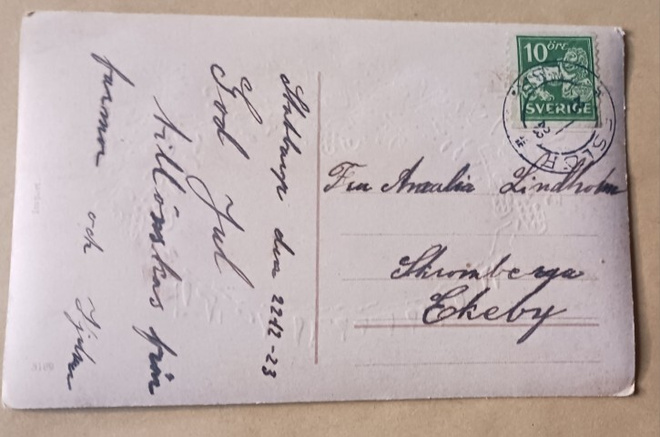 den 22 12-23
God Jul
tillönskas från
farmor och
10 öre
SVERIGE
ESLÖV
23
Fru Amalia Lindholm
Skromberga
Ekeby